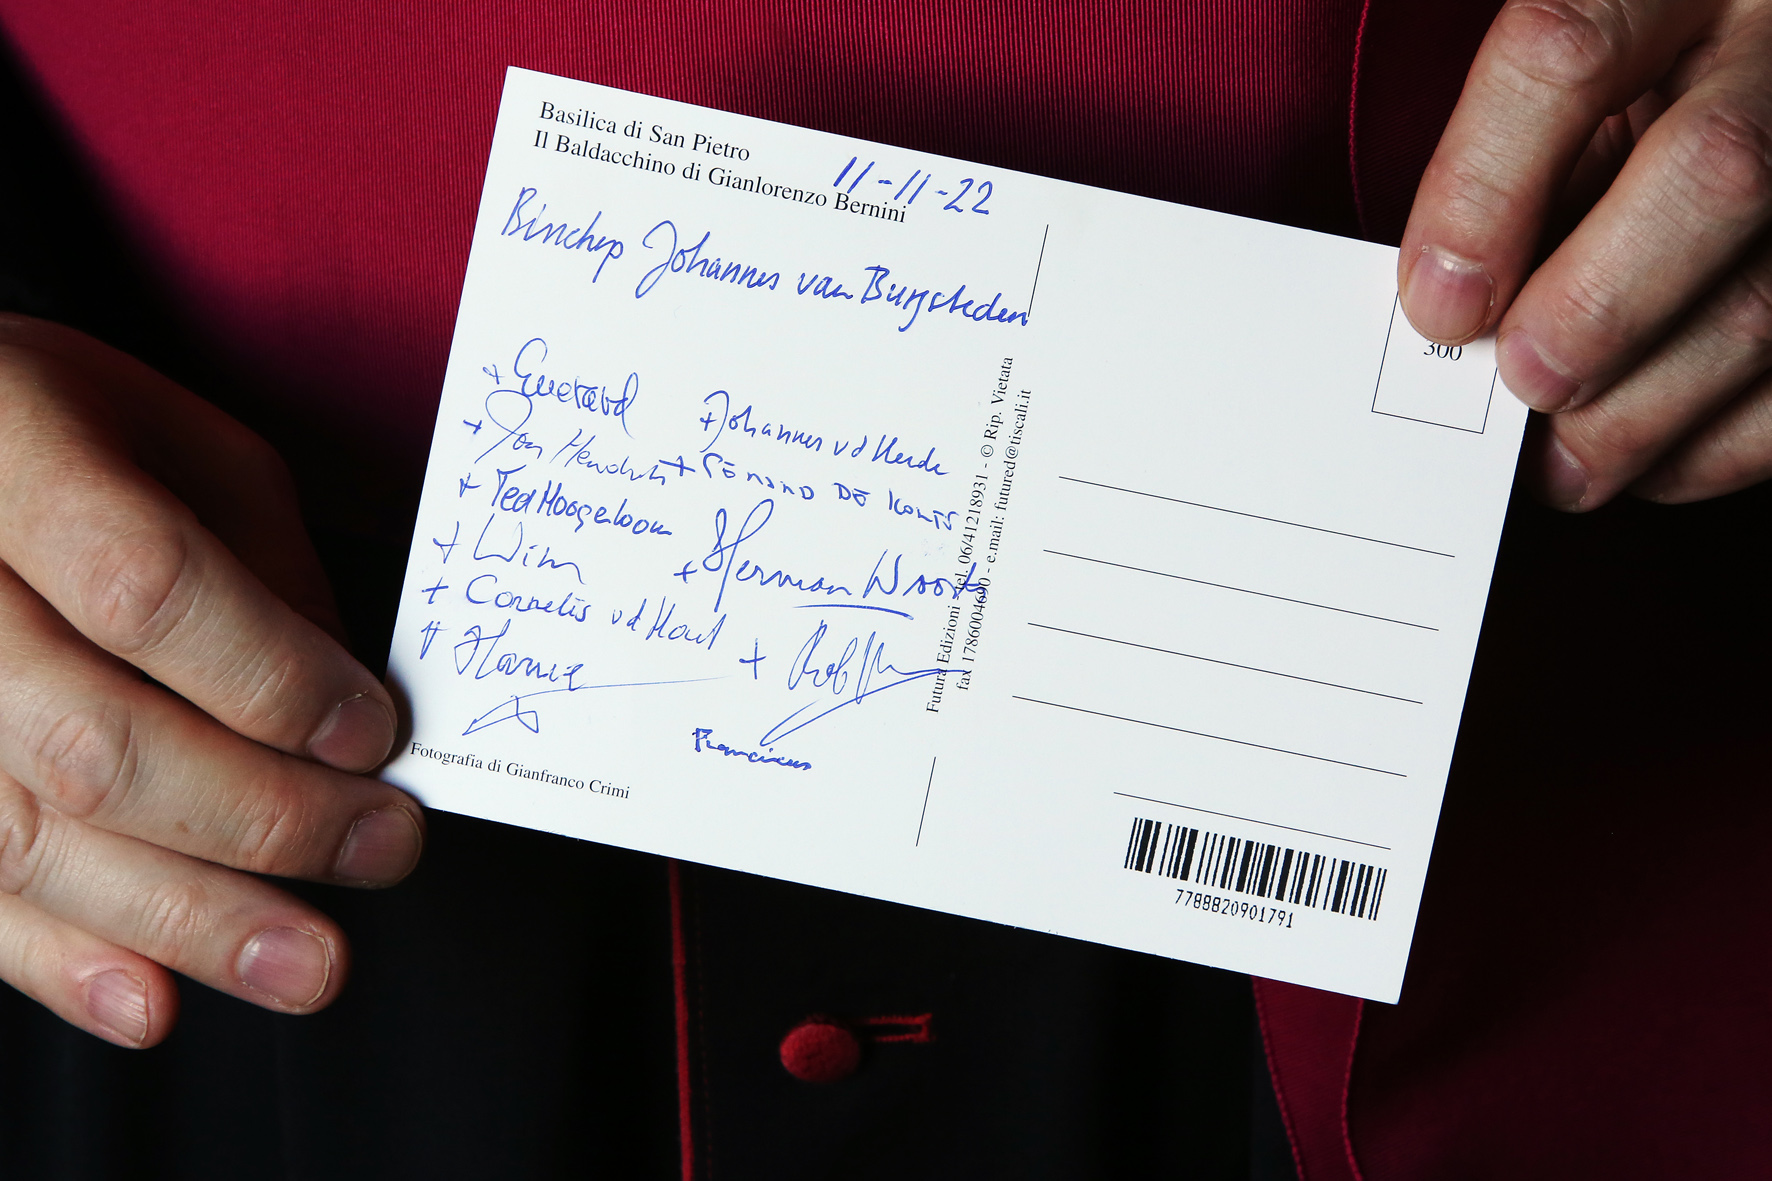 Basilica di San Pietro
Il Baldacchino di Gianlorenzo Bernini
11-11-22
Johannes van Burgsteden
+ Gerard
+ Johannes vd Hende
+ Jan Hendriks
+ DE KORTE
+ Ted Hoogenboom
+ Wim
+ Herman Woorts
+ Cornelis vd Hout
+ Harrie
+ Rob
Franciscus
Fotografia di Gianfranco Crimi
Futura Edizioni tel. 06/41218931 - © Rip. Vietata
fax 1786004690 - e.mail: futured@tiscali.it
300
7788820901791